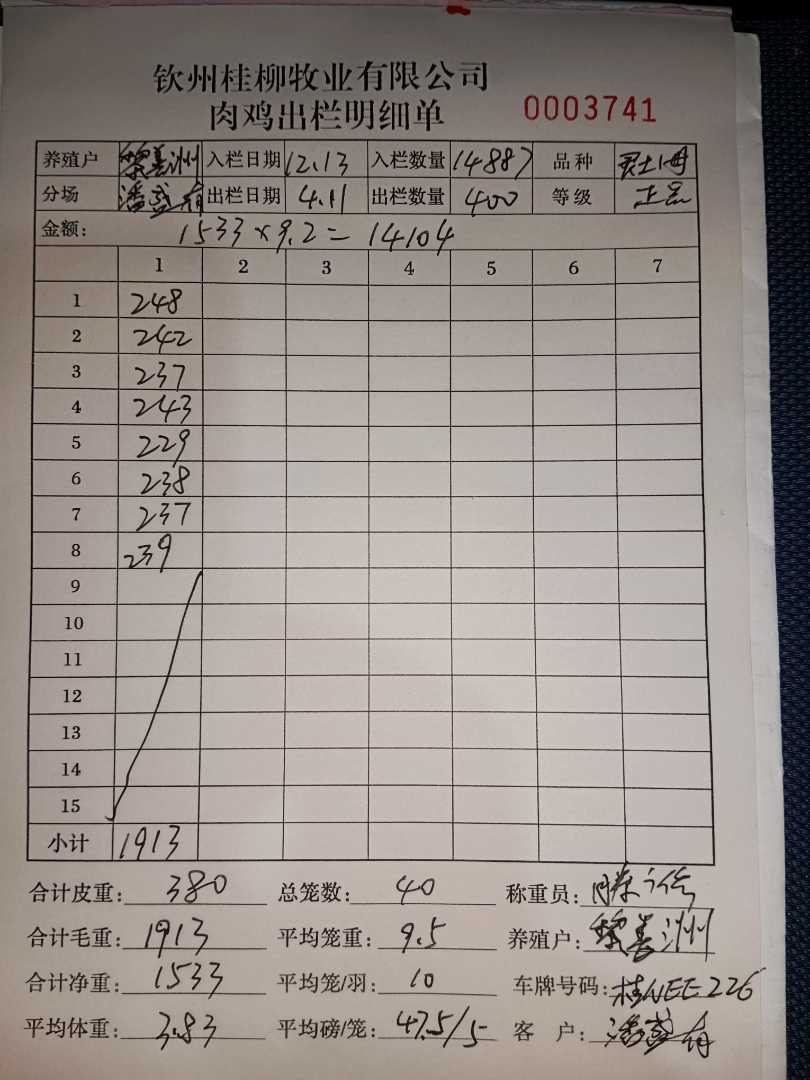 钦州桂柳牧业有限公司
肉鸡出栏明细单 0003741
养殖户 黎善洲 入栏日期 12.13 入栏数量 14887 品种
分场 潘盛有 出栏日期 4.11 出栏数量 400 等级 正品
金额: 1533×9.2=14104
1 2 3 4 5 6 7
1 248
2 242
3 237
4 243
5 229
6 238
7 237
8 239
9
10
11
12
13
14
15
小计 1913
合计皮重: 380 总笼数: 40 称重员:
合计毛重: 1913 平均笼重: 9.5 养殖户: 黎善洲
合计净重: 1533 平均笼/羽: 10 车牌号码: 桂NEE226
平均体重: 3.83 平均磅/笼: 47.5/5 客 户: 潘盛有